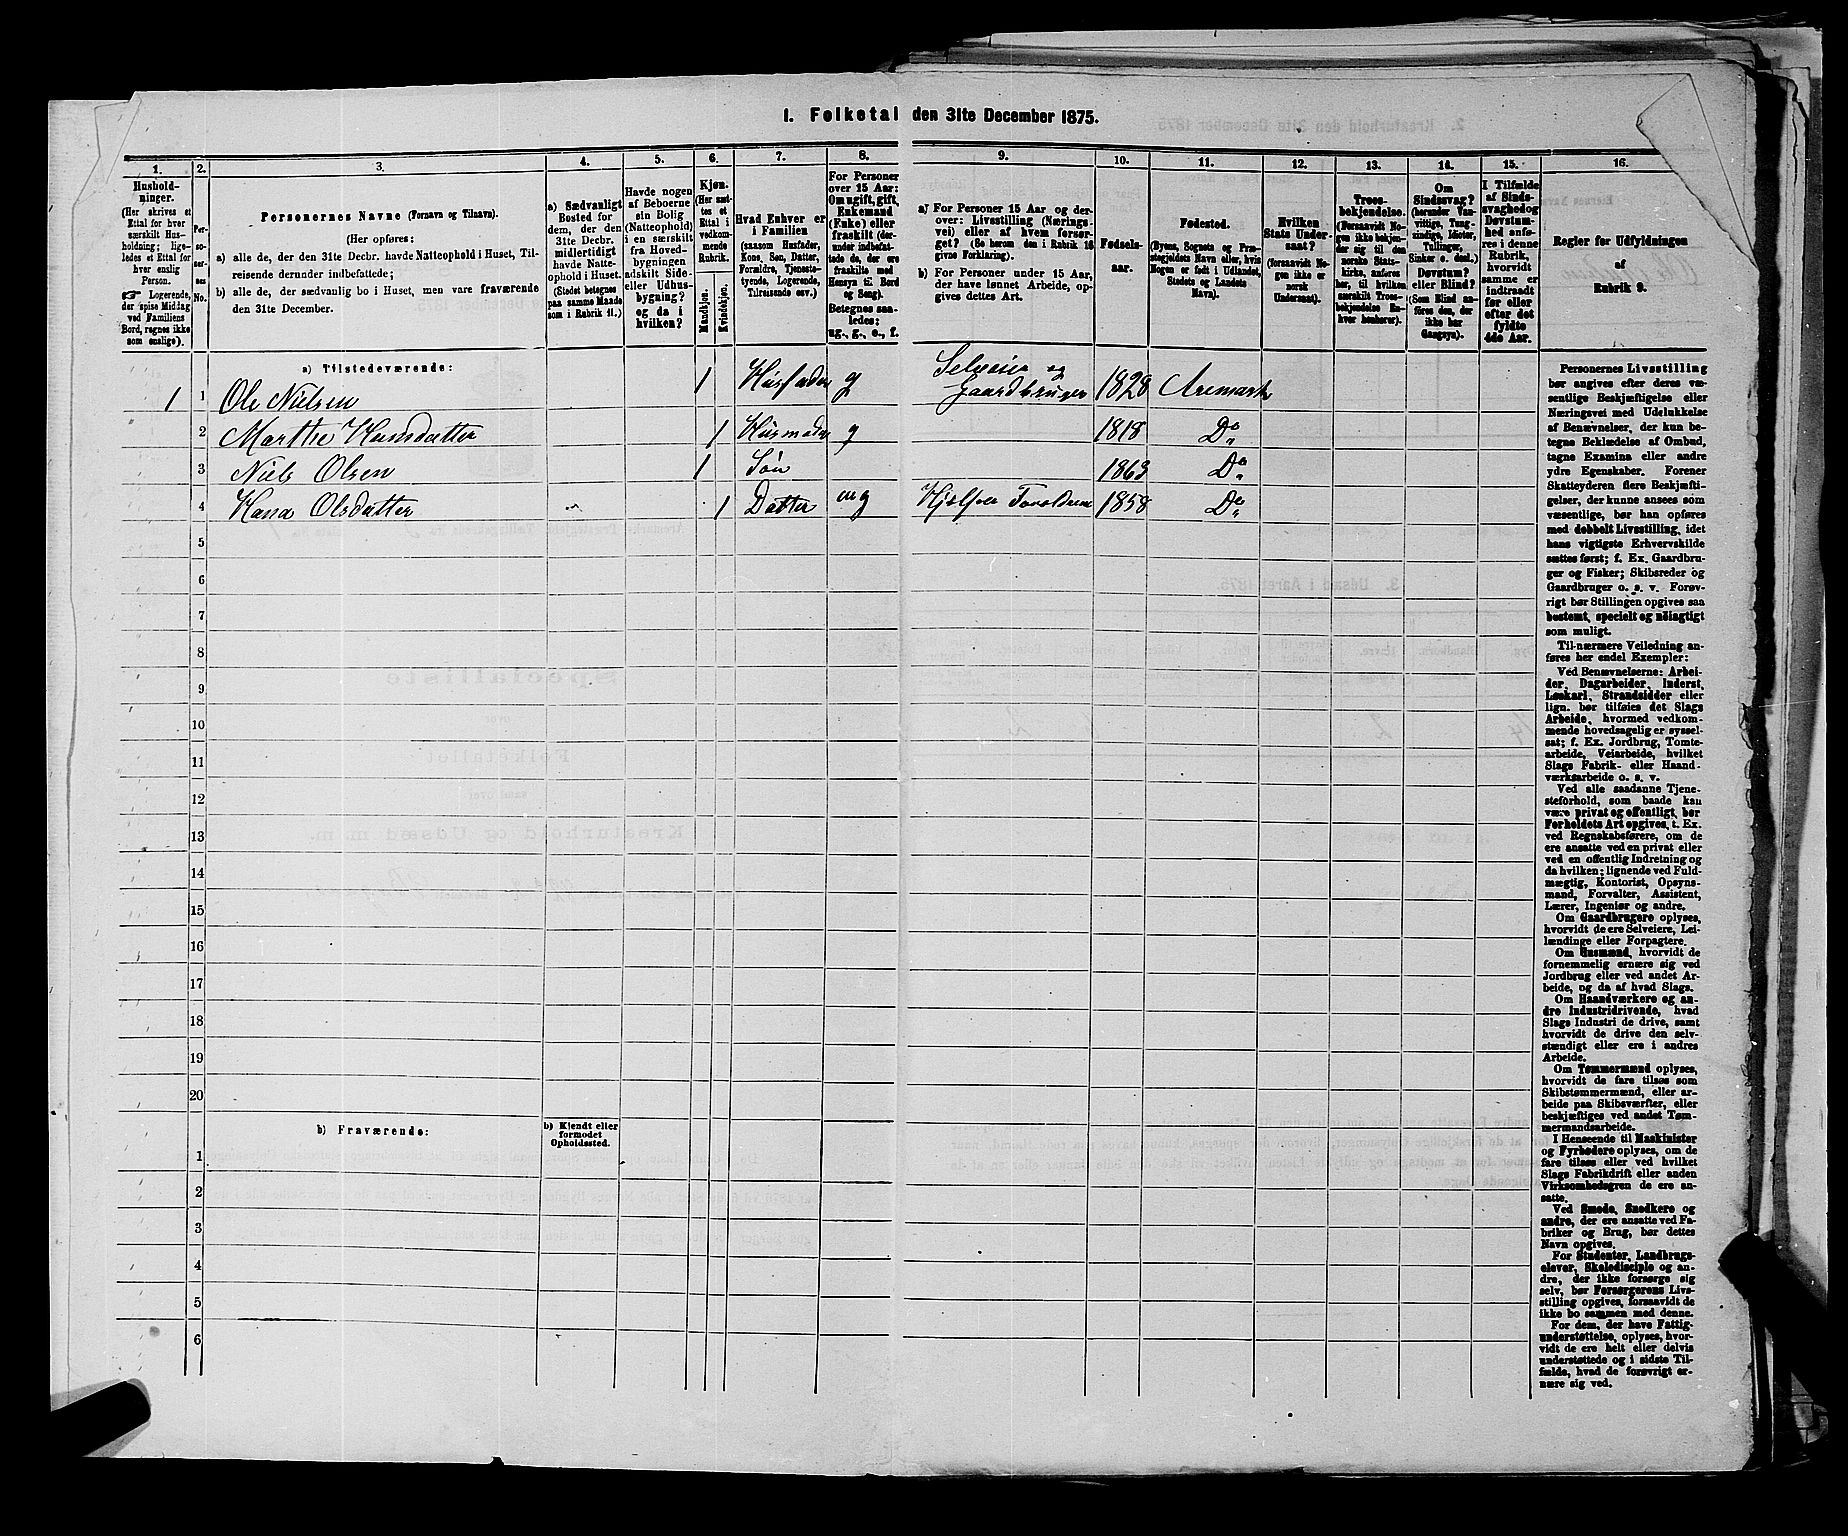 1. Folketal den 31te December 1875.
1. 2. 3. 4. 5. 6. 7. 8. 9. 10. 11. 12. 13. 14. 15. 16.
Hushold-
ninger.
(Her skrives et
Ettal for hver
særskilt Hus-
holdning; lige-
ledes et Ettal for
hver enslig
Person.
☞ Logerende,
der spise Middag
ved Familiens
Bord, regnes ikke
som enslige).
Per-
so-
ner-
nes
No.
Personernes Navne (Fornavn og Tilnavn).
(Her opføres:
a) alle de, der den 31te Decbr. havde Natteophold i Huset, Til-
reisende derunder indbefattede;
b) alle de, der sædvanlig bo i Huset, men vare fraværende
den 31te December.
a) Sædvanligt
Bosted for
dem, der den
31te Decbr.
midlertidigt
havde Natte-
ophold i Huset.
(Stedet betegnes
paa samme Maade
som i Rubrik 11.)
Havde nogen
af Beboerne
sin Bolig
(Natteophold)
i en særskilt
fra Hoved-
bygningen
adskilt Side-
eller Udhus-
bygning?
og da i
hvilken?
Kjøn.
(Her sæt-
tes et
Ettal i
vedkom-
mende
Rubrik.
Mandkjøn.
Kvindekjøn.
Hvad Enhver er
i Familien
(saasom Husfader,
Kone, Søn, Datter,
Forældre, Tjeneste-
tyende, Logerende,
Tilreisende osv.)
For Personer
over 15 Aar:
Om ugift, gift,
Enkemand
(Enke) eller
fraskilt (der-
under indbefat-
tede de, der ere
fraskilte med
Hensyn til Bord
og Seng).
Betegnes saa-
ledes:
ug., g., e., f.
a) For Personer 15 Aar og der-
over: Livsstilling (Nærings-
vei) eller af hvem forsør-
get? (Se herom den i Rubrik 16
givne Forklaring).
b) For Personer under 15 Aar,
der have lønnet Arbeide, op-
gives dettes Art.
Fødsels-
aar.
Fødested.
(Byens, Sognets og Præ-
stegjeldets Navn eller, hvis
Nogen er født i Udlandet,
Stedets og Landets
Navn).
Hvilken
Stats Under-
saat?
(forsaavidt No-
gen ikke er
norsk
Undersaat).
Troes-
bekjendelse.
(Forsaavidt No-
gen ikke bekjen-
der sig til den
norske Stats-
kirke, anføres
her, til hvilken
særskilt Troes-
bekjendelse En-
hver henhører).
Om
Sindssvag?
(herunder Van-
vittige, Tung-
sindige, Idioter,
Tullinger,
Sinker o. desl.)
Døvstum?
eller Blind?
(Som Blind an-
føres den, der
ikke har
Gangsyn).
I Tilfælde
af Sinds-
svaghed og
Døvstum-
hed anfø-
res i denne
Rubrik,
hvorvidt
samme er
indtraadt
før eller
efter det
fyldte
4de Aar.
Regler for Udfyldningen
af
Rubrik 9.
a) Tilstedeværende:
1 1 Ole Nielsen 1 Husfader g Selveier og Gaardbruger 1828 Aremark
2 Marthe Hansdatter 1 Husmoder g 1818 Do
3 Niels Olsen 1 Søn 1863 Do
4 Hana Olsdatter 1 Datter ug Hjelper Forældrene 1858 Do
5
6
7
8
9
10
11
12
13
14
15
16
17
18
19
20
b) Fraværende:
b) Kjendt eller
formodet
Opholdssted.
1
2
3
4
5
6
Personernes Livsstilling
bør angives efter deres væ-
sentlige Beskjæftigelse eller
Næringsvei med Udelukkelse
af Benævnelser, der kun be-
tegne Beklædelse af Ombud,
tagne Examina eller andre
ydre Egenskaber. Forener
Skatteyderen flere Beskjæfti-
gelser, der kunne ansees som
væsentlige, bør han opføres
med dobbelt Livsstilling, idet
hans vigtigste Erhvervskilde
sættes først; f. Ex. Gaardbru-
ger og Fisker; Skibsreder og
Gaardbruger o. s. v. Forøv-
rigt bør Stillingen opgives saa
bestemt, specielt og nøiagtigt
som muligt.
Til nærmere Veiledning an-
føres her endel Exempler:
Ved Benævnelserne: Arbei-
der, Dagarbeider, Inderst,
Løskarl, Strandsidder eller
lign. bør tilføies det Slags
Arbeide, hvormed vedkom-
mende hovedsagelig er syssel-
sat; f. Ex. Jordbrug, Tomte-
arbeide, Veiarbeide, hvilket
Slags Fabrik- eller Haand-
værksarbeide o. s. v.
Ved alle saadanne Tjene-
steforhold, som baade kan
være privat og offentligt, bør
Forholdets Art opgives, t. Ex.
ved Regnskabsførere, om de
ere ansatte ved en privat eller
ved en offentlig Indretning og
da hvilken; lignende ved Fuld-
mægtig, Kontorist, Opsyns-
mand, Forvalter, Assistent,
Lærer, Ingeniør og andre.
Om Gaardbrugere oplyses,
hvorvidt de ere Selveiere, Lei-
lændinge eller Forpagtere.
Om Husmænd, hvorvidt de
fornemmelig ernære sig ved
Jordbrug eller ved andet Ar-
beide, og da af hvad Slags.
Om Haandværkere og an-
dre Industridrivende, hvad
Slags Industri de drive, samt
hvorvidt de drive den selv-
stændigt eller ere i andres
Arbeide.
Om Tømmermænd oplyses,
hvorvidt de fare tilsøs som
Skibstømmermænd, eller ar-
beide paa Skibsværfter, eller
beskjæftiges ved andet Tøm-
mermandsarbeide.
I Henseende til Maskinister
og Fyrbødere oplyses, om de
fare tilsøs eller ved hvilket
Slags Fabrikdrift eller anden
Virksomhedsgren de ere an-
satte.
Ved Smede, Snedkere og
andre, der ere ansatte ved Fa-
briker og Brug, bør dettes
Navn opgives.
For Studenter, Landbrugs-
elever, Skoledisciple og an-
dre, der ikke forsørge sig
selv, bør Forsørgerens Livs-
stilling opgives, forsaavidt de
ikke bo sammen med denne.
For dem, der have Fattig-
understøttelse, oplyses, hvor-
vidt de ere helt eller delvis
understøttede og i sidste Til-
fælde, hvad de forøvrigt er-
nære sig ved.